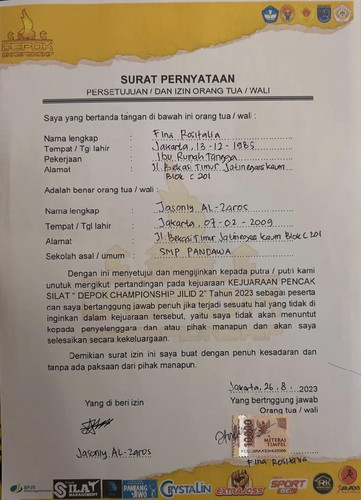 DEPOK
SURAT PERNYATAAN
PERSETUJUAN / DAN IZIN ORANG TUA / WALI
Saya yang bertanda tangan di bawah ini orang tua / wali :
Nama lengkap : Fina Rositalia
Tempat / Tgl lahir : Jakarta, 13-12-1985
Pekerjaan : Ibu Rumah Tangga
Alamat : Jl. Bekasi Timur Jatinegara Kaum
Blok C 201
Adalah benar orang tua / wali :
Nama lengkap : Jasonly AL-Zaros
Tempat / Tgl lahir : Jakarta, 07-02-2009
Alamat : Jl. Bekasi Timur Jatinegara Kaum Blok C 201
Sekolah asal / umum : SMP PANDAWA
Dengan ini menyetujui dan mengijinkan kepada putra / putri kami
untuk mengikut pertandingan pada kejuaraan KEJUARAAN PENCAK
SILAT " DEPOK CHAMPIONSHIP JILID 2" Tahun 2023 sebagai peserta
dan saya bertanggung jawab penuh jika terjadi sesuatu hal yang tidak di
inginkan dalam kejuaraan tersebut, yaitu saya tidak akan menuntut
kepada penyelenggara dan atau pihak manapun dan akan saya
selesaikan secara kekeluargaan.
Demikian surat izin ini saya buat dengan penuh kesadaran dan
tanpa ada paksaan dari pihak manapun.
Jakarta, 26.8. 2023
Yang di beri izin
Yang bertnggung jawab
Orang tua / wali
10000
METERAI
TEMPEL
Jasonly AL-Zaros
Fina Rositalia
SILAT
CRYSTALIN
EXTRAJOSS
SPORT
RK